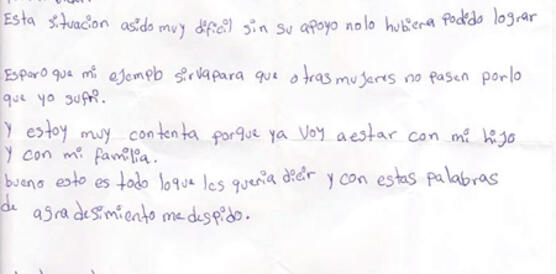 Esta situacion asido muy dificil sin su apoyo nolo hubiera podido lograr
Espero que mi ejemplo sirvapara que otras mujeres no pasen porlo
que yo sufri.
Y estoy muy contenta porque ya voy aestar con mi hijo
Y con mi familia.
bueno esto es todo loque les queria dicir y con estas palabras
de agradesimiento me despido.